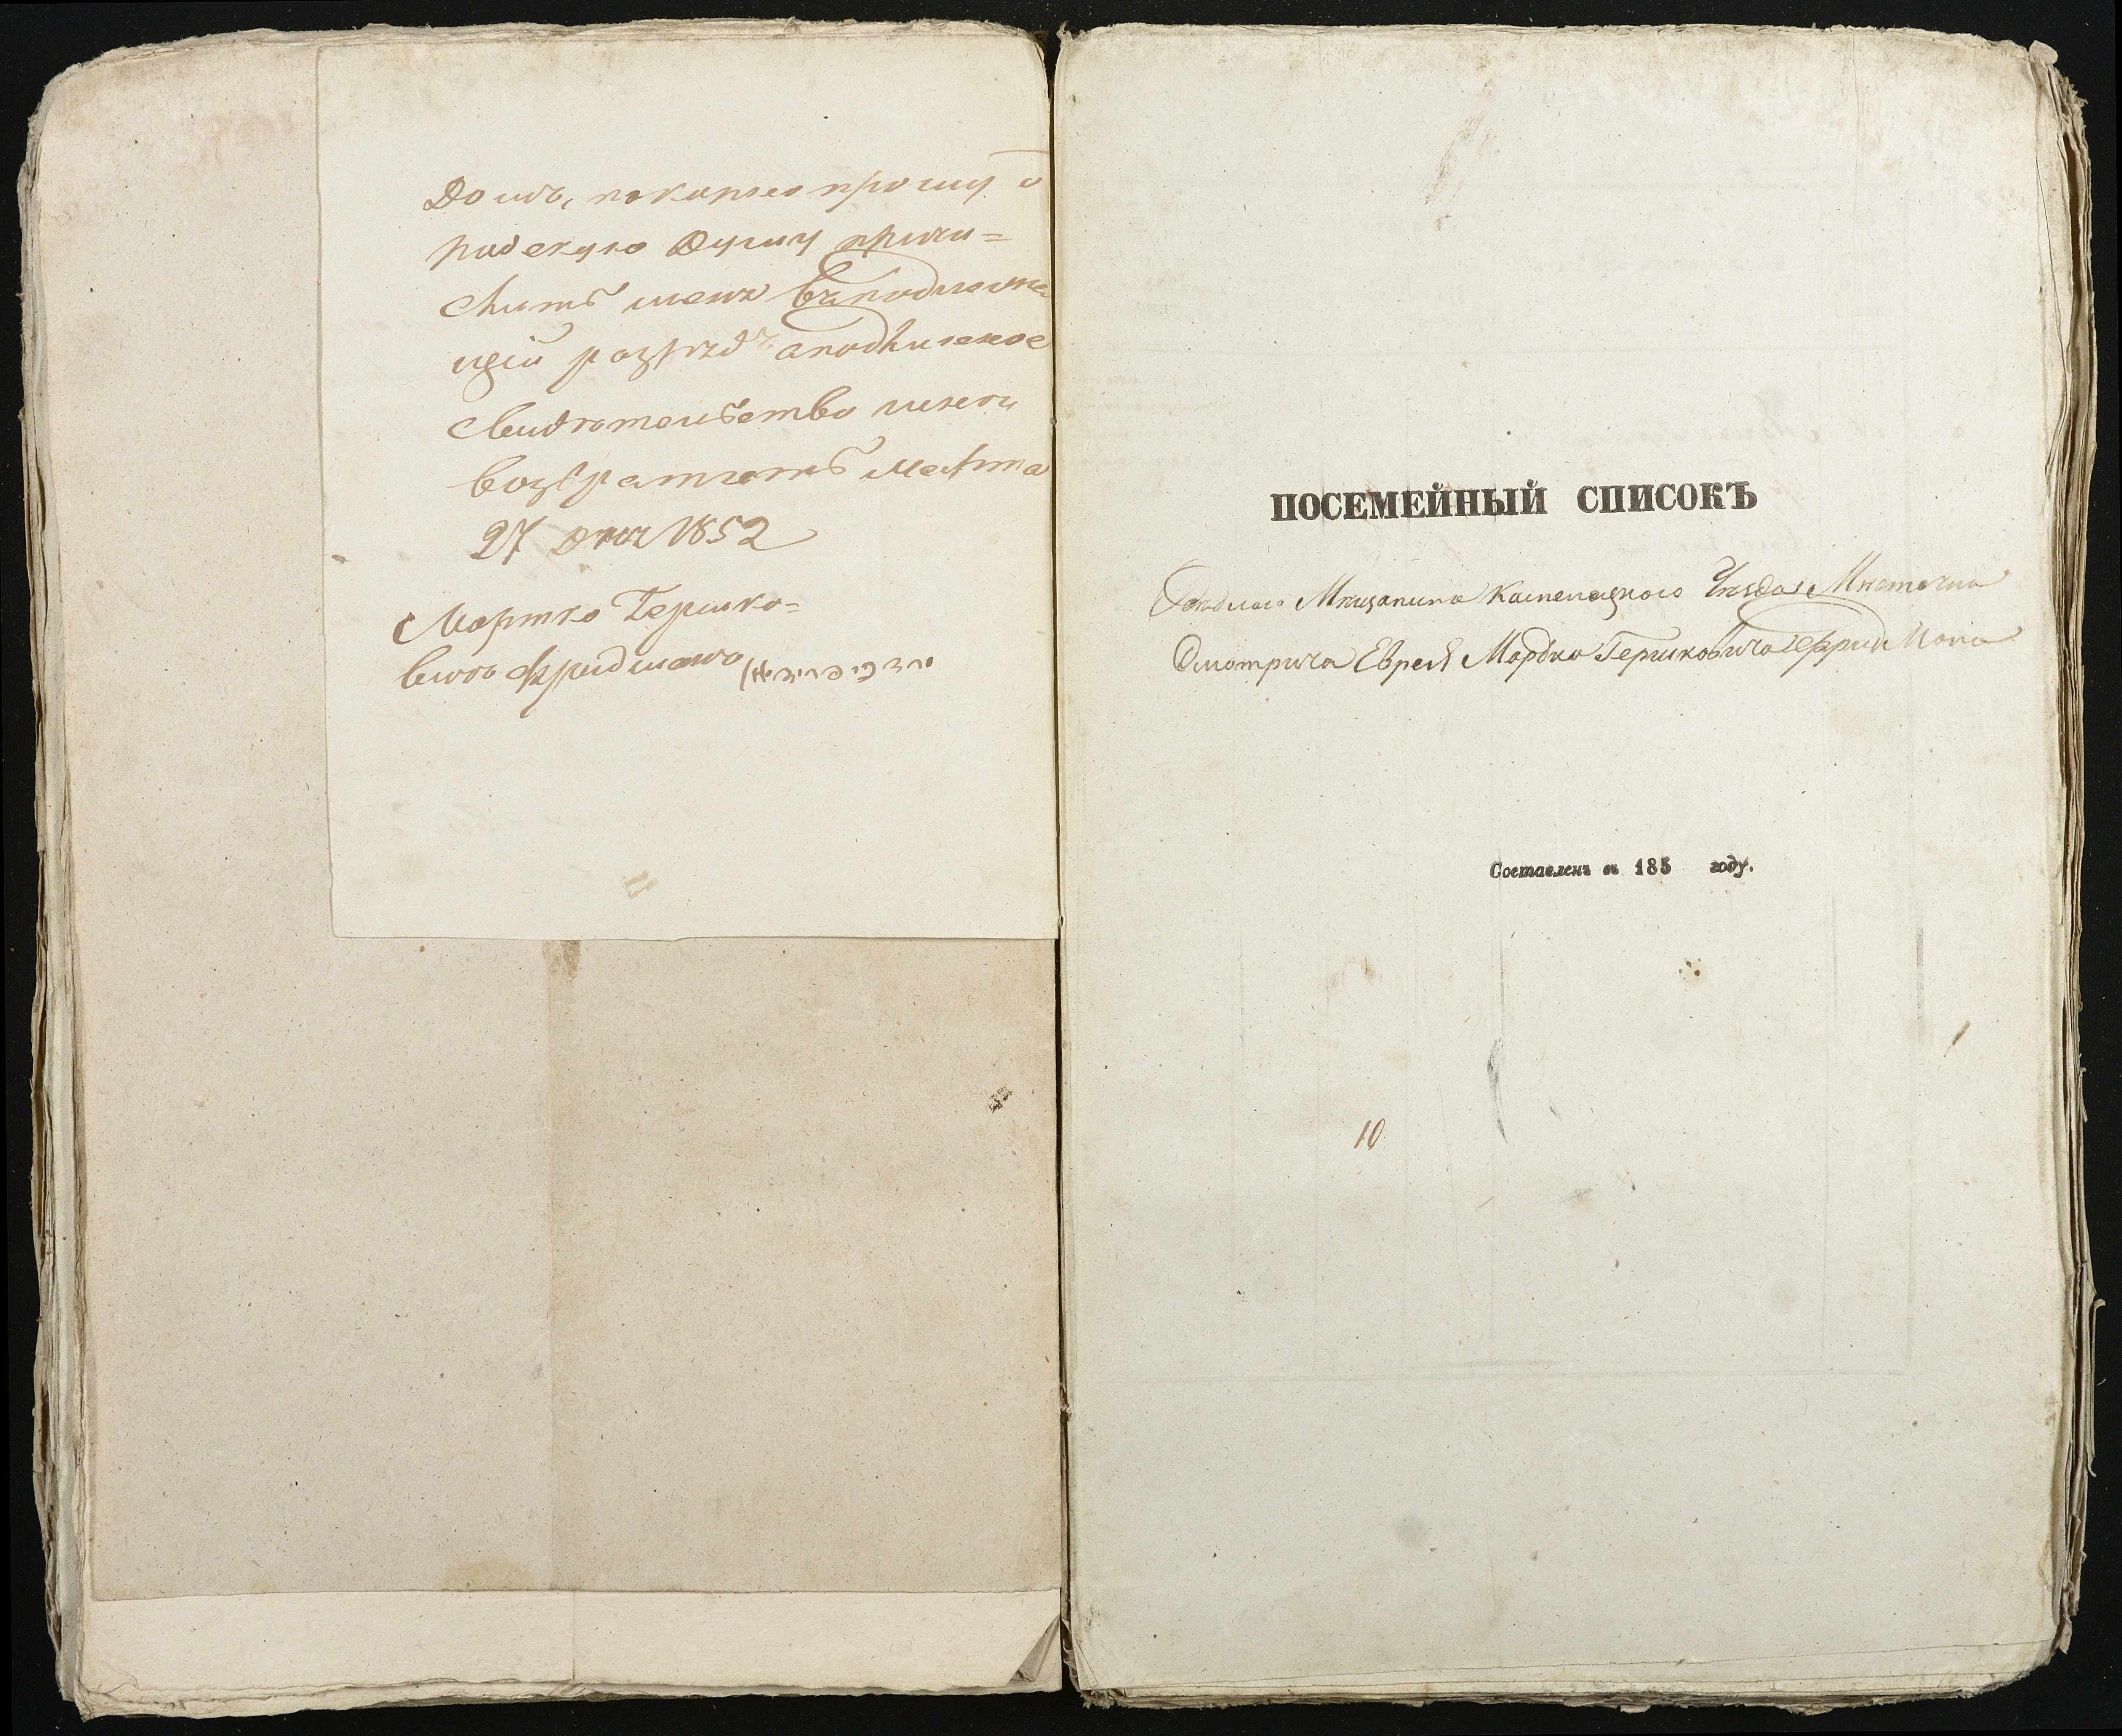 Домъ, покорно прошу о
Радскую Думу причи=
слить меня въ подлежа
щій розрядъ а подлинное
свидѣтельство мнѣ
возвратить Марта
27 дня 1852
Мортко Гершко=
вичъ Фридманъ
ПОСЕМЕЙНЫЙ СПИСОКЪ
Мѣщанина Каменецкого Уѣзда Мѣстечка
Смотрича Еврея Мордка Гершковича Фридмана
Составленъ въ 185 году.
10